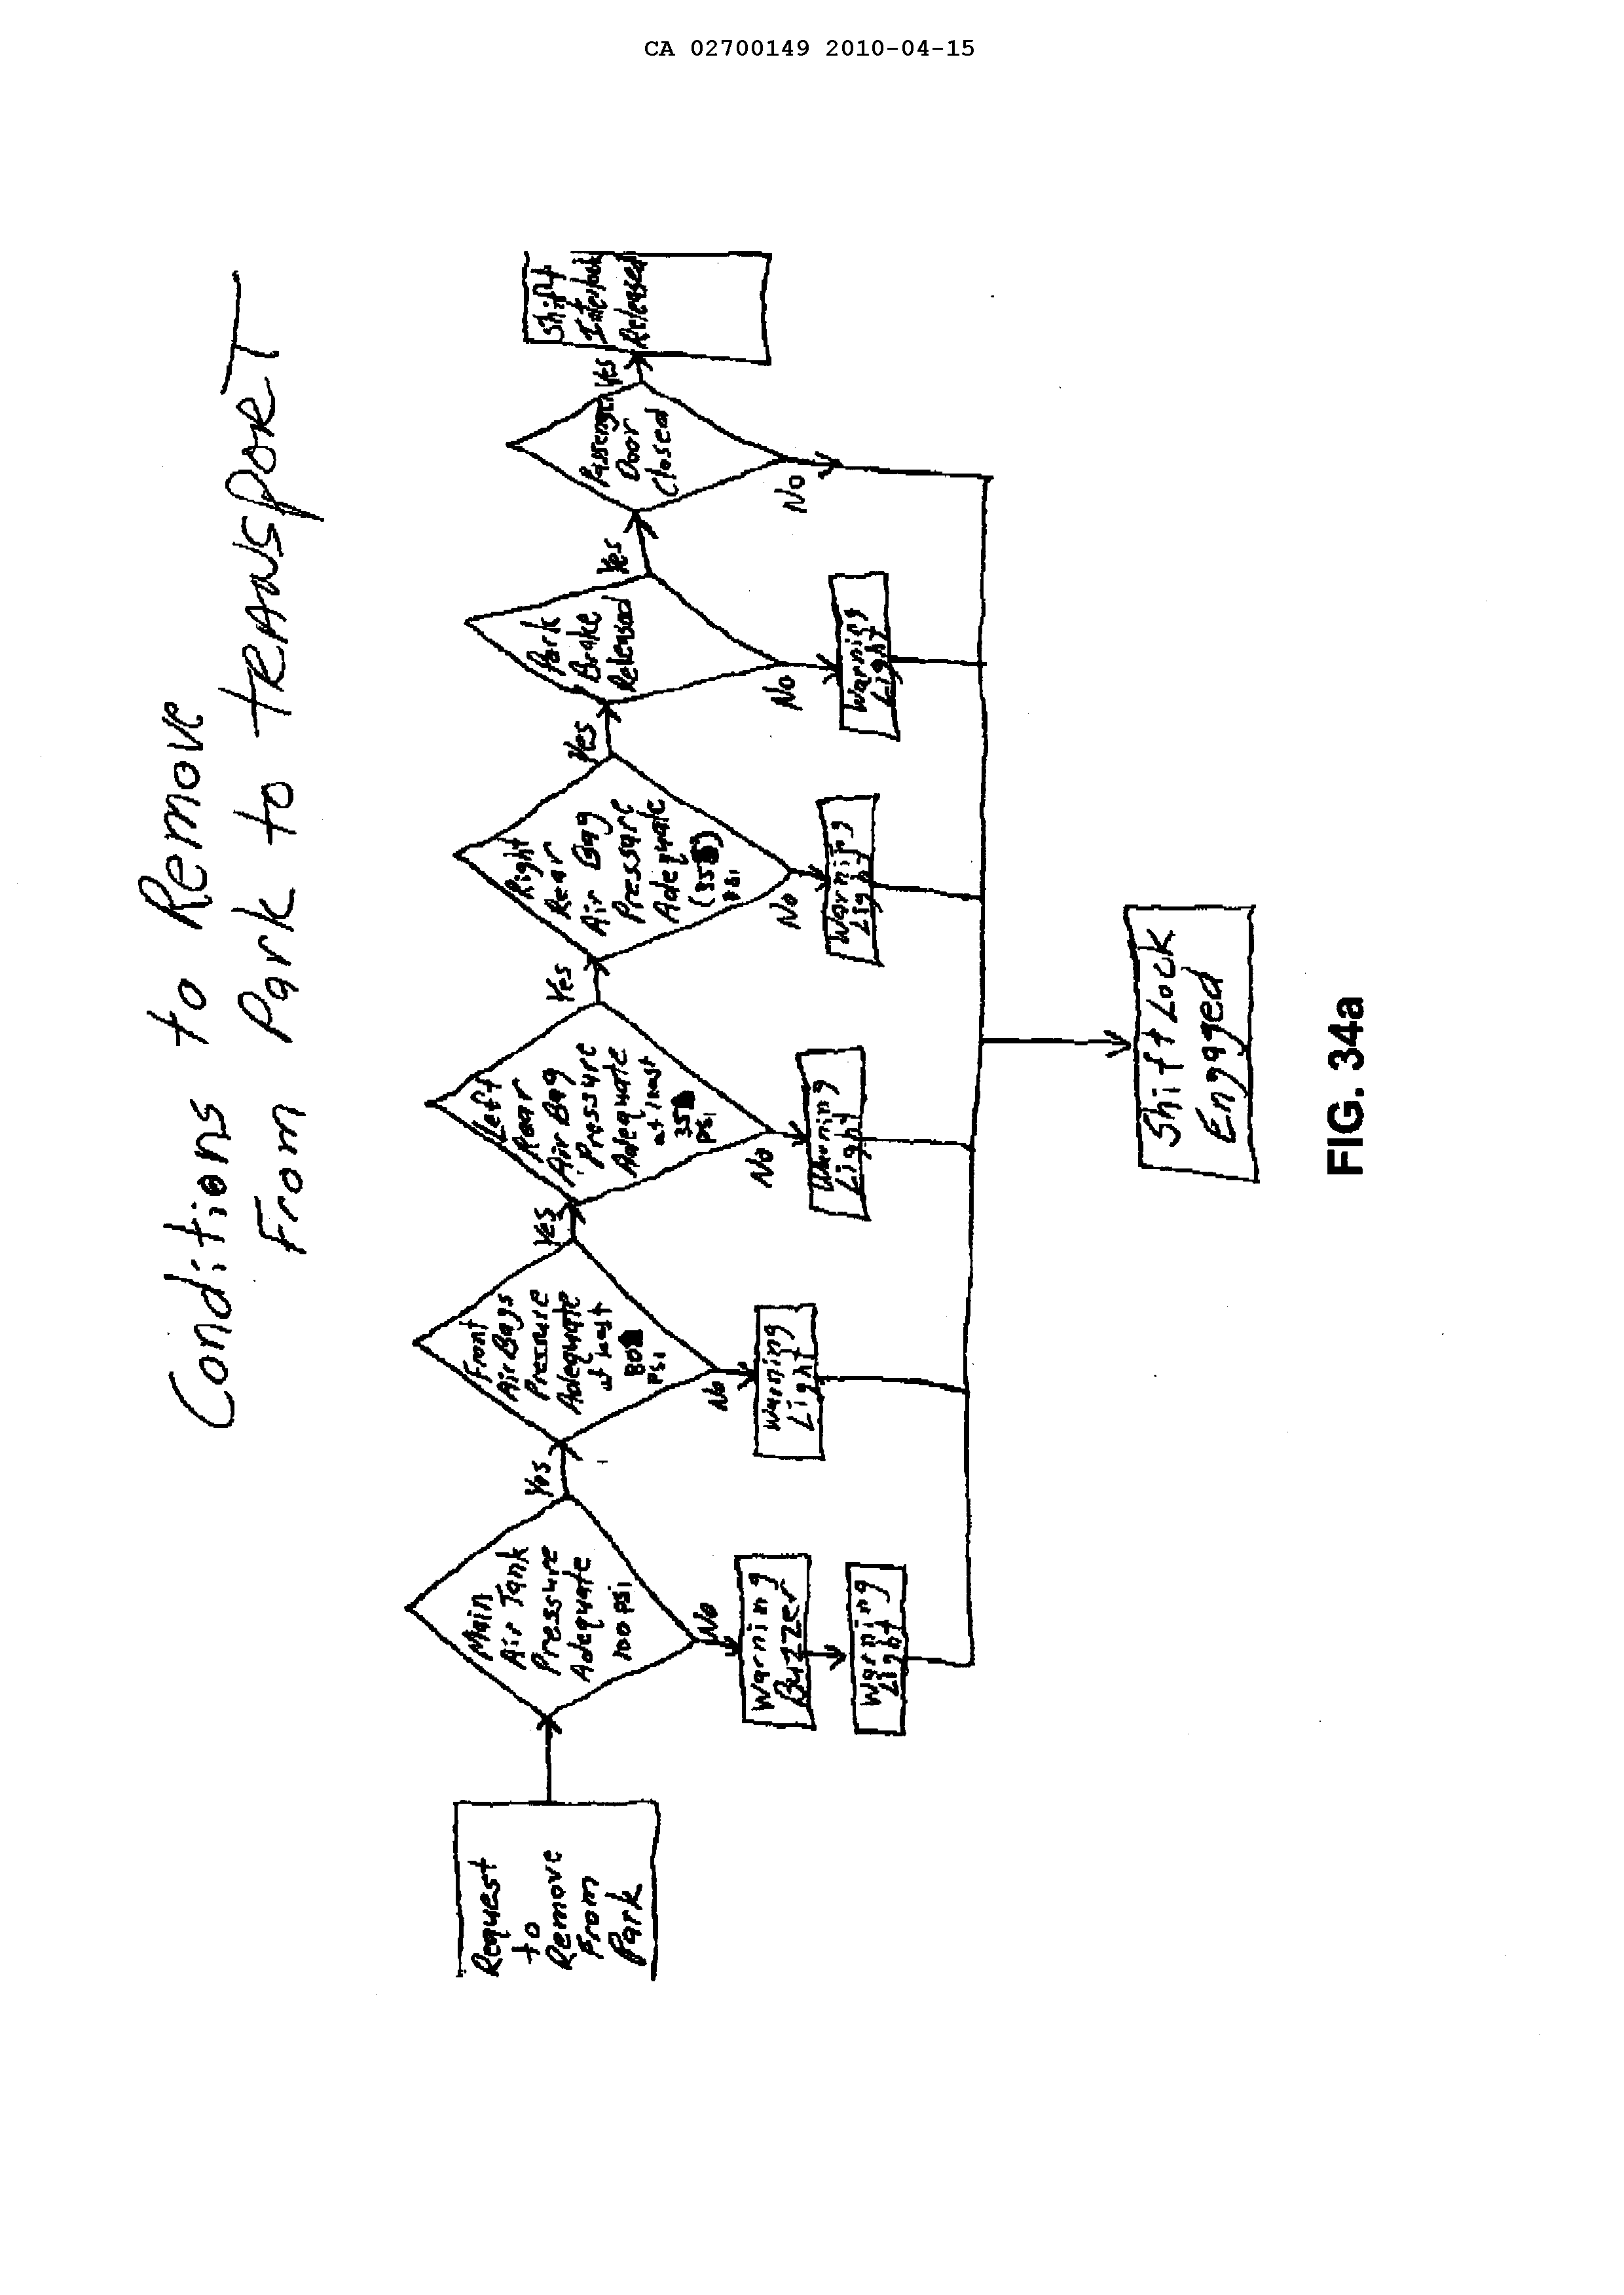 CA 02700149 2010-04-15
Conditions to Remove
From Park to TRANSPORT
Request
to
Remove
From
Park
Main
Air Tank
Pressure
Adequate
100 PSi
Yes
No
Warning
Buzzer
Warning
Light
Front
Air Bags
Pressure
Adequate
at least
80
PSi
Yes
No
Warning
Light
Left
Rear
Air Bag
Pressure
Adequate
at least
35
PSi
Yes
No
Warning
Light
Right
Rear
Air Bag
Pressure
Adequate
(35)
PSi
Yes
No
Warning
Light
Park
Brake
Released
Yes
No
Warning
Light
Door
Closed
Yes
No
Shift
Interlock
Released
Shift Lock
Engaged
FIG. 34a